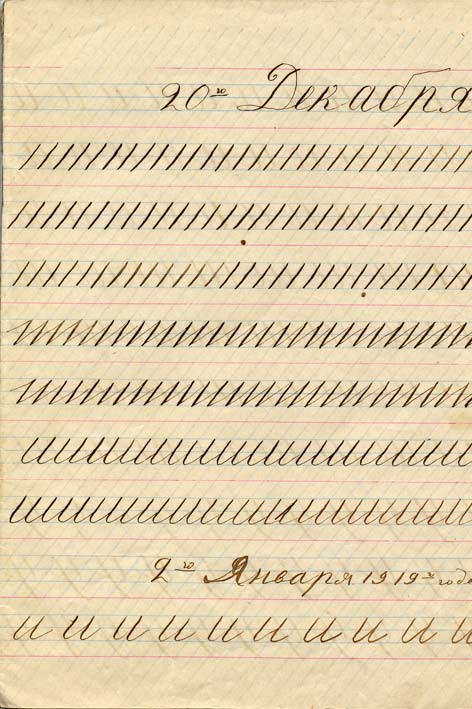 20го Декабря
2го Января 1919го года
и и и и и и и и и и